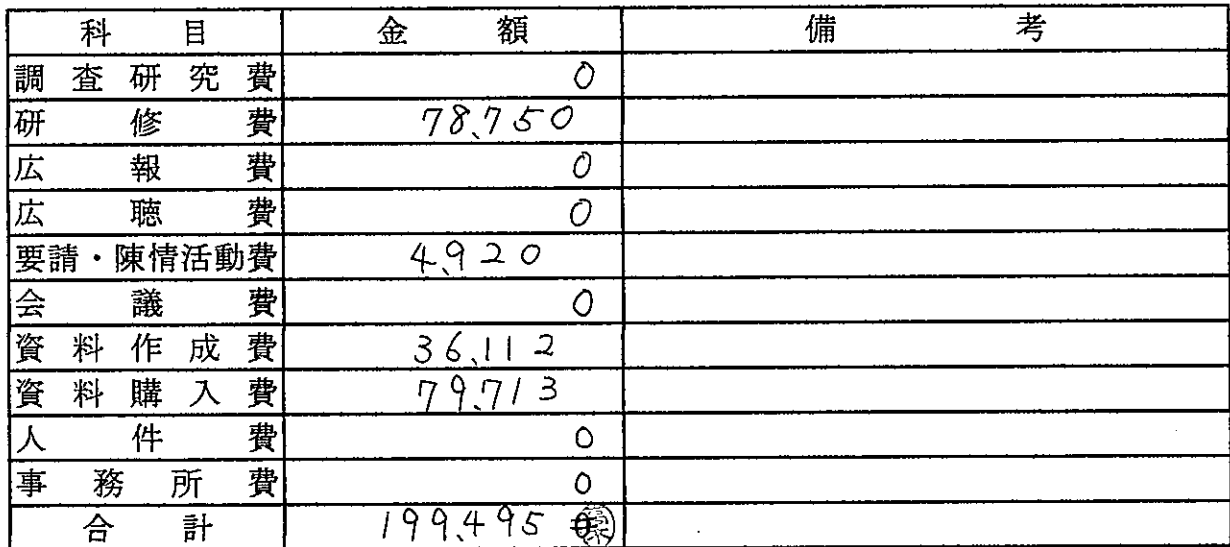 科目 金額 備考
調査研究費 0
研修費 78,750
広報費 0
広聴費 0
要請・陳情活動費 4,920
会議費 0
資料作成費 36,112
資料購入費 79,713
人件費 0
事務所費 0
合計 199,495